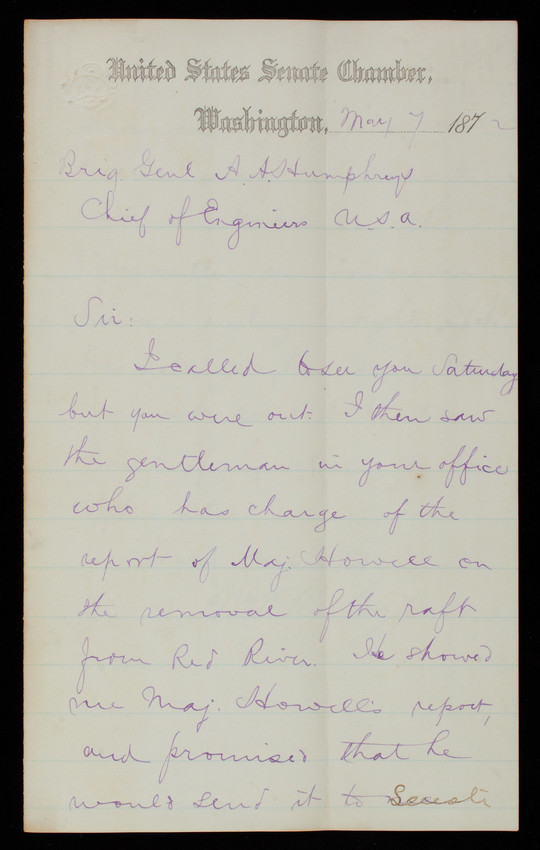 United States Senate Chamber,
Washington, May 7 1872
Brig Genl A. A. Humphreys
Chief of Engineers U.S.A.
Sir:
I called to see you Saturday
but you were out. I then saw
the gentleman in your office
who has charge of the
report of Maj. Howell on
the removal of the raft
from Red River. He showed
me Maj. Howell's report,
and promised that he
would send it to Senate